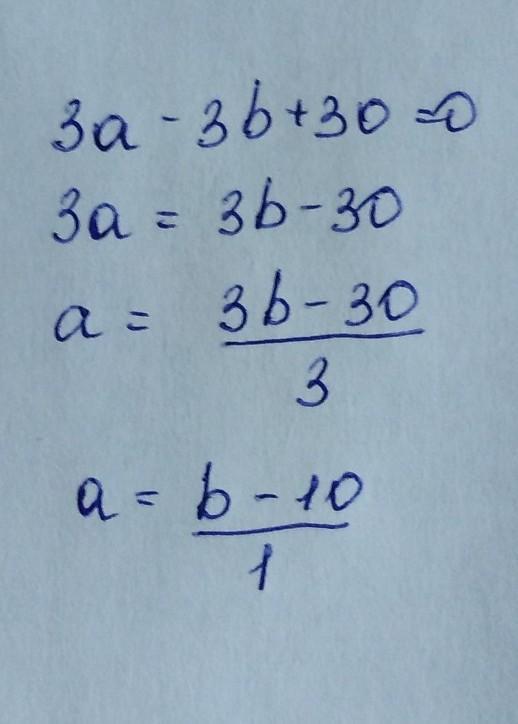 3a - 3b + 30 = 0
3a = 3b - 30
a = 3b - 30
3
a = b - 10
1